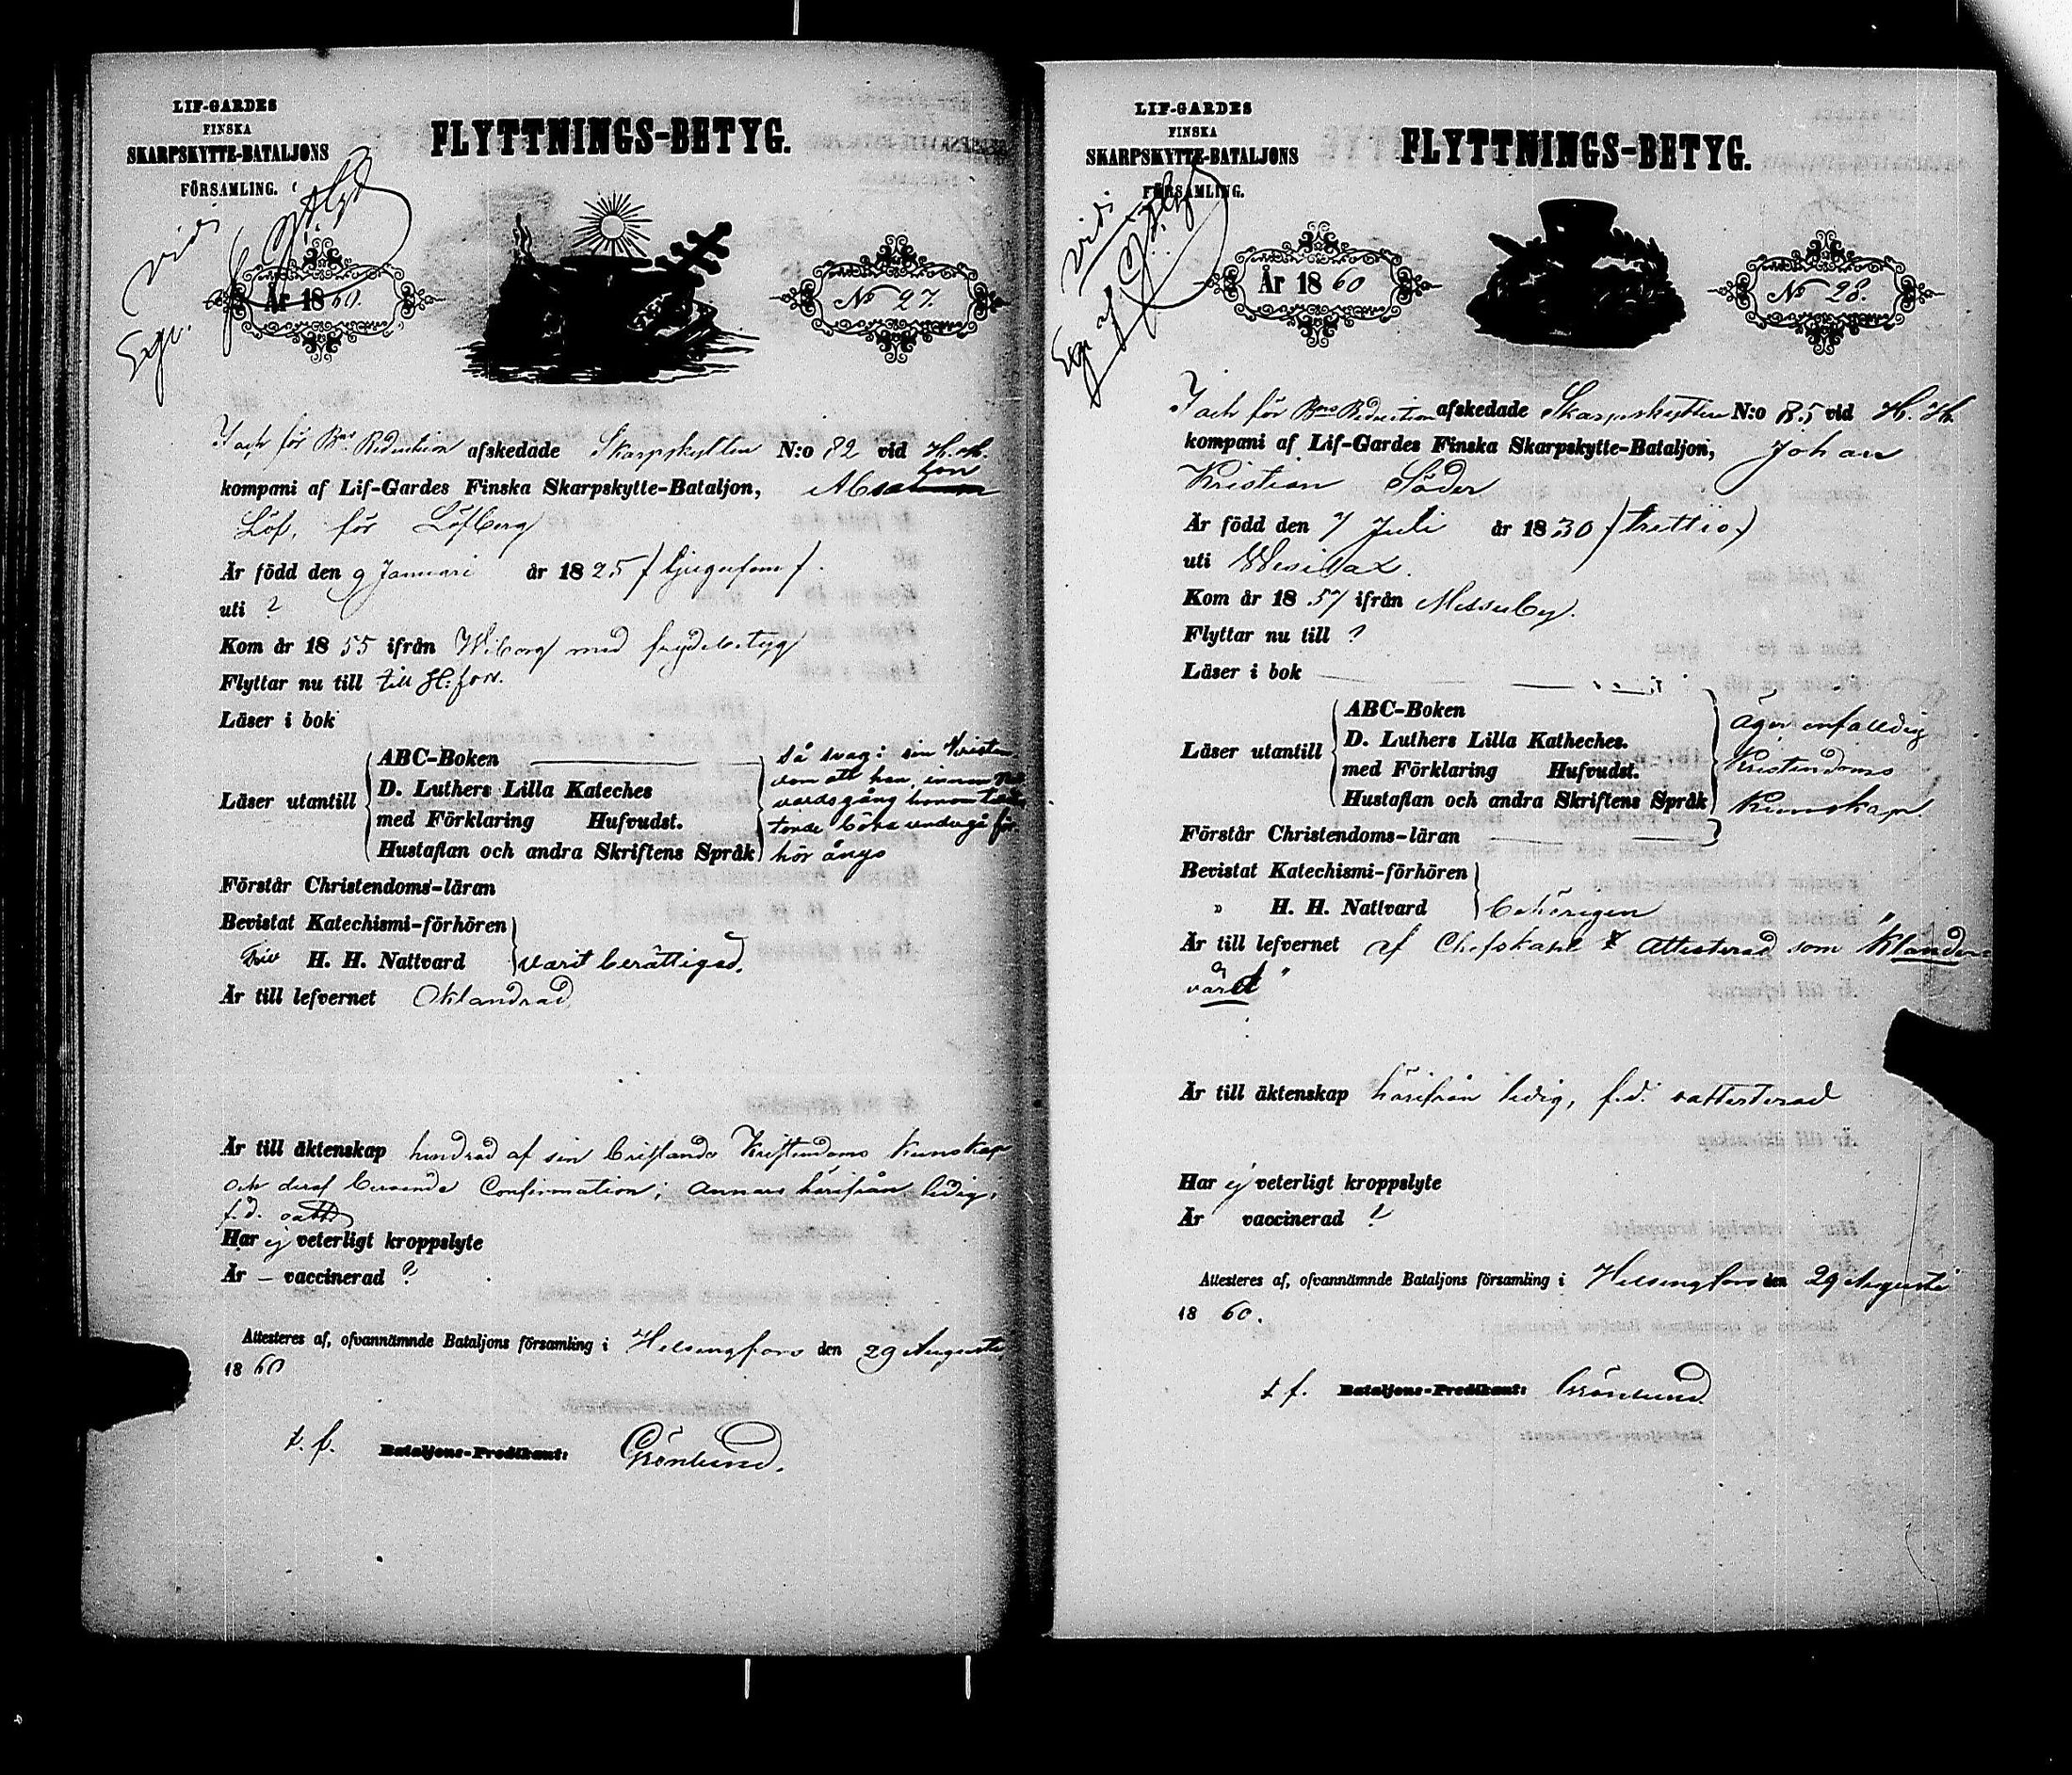 LIF-GARDES
FINSKA
SKARPSKYTTE-BATALJONS
FÖRSAMLING.
FLYTTNINGS-BETYG.
vidi
Exp.
År 1860.
No 27.
för Bns Reduction afskedade Skarpskytten N:o 82 vid H. H.
kompani af Lif-Gardes Finska Skarpskytte-Bataljon,
Löf, för Löfberg
Är född den 9 Januari år 1825 / tjugufem /.
uti ?
Kom år 1855 ifrån Wiborg med frejdebetyg
Flyttar nu till till H:fors.
Läser i bok
Läser utantill
ABC-Boken
D. Luthers Lilla Kateches
med Förklaring Hufvudst.
Hustaflan och andra Skriftens Språk
så svag i sin Kristen
dom att han, innan Natt
vardsgång honom
borde undergå för
hör ånyo
Förstår Christendoms-läran
Bevistat Katechismi-förhören
H. H. Nattvard varit berättigad.
Är till lefvernet Oklandrad
Är till äktenskap hindrad af sin bristande Kristendoms Kunskap
och deraf beroende Confirmation; annars härifrån ledig,
f.d.
Har ej veterligt kroppslyte
Är – vaccinerad ?
Attesteres af, ofvannämnde Bataljons församling i Helsingfors den 29 Augusti
1860
t. f. Bataljons-Predikant: Grönlund.
LIF-GARDES
FINSKA
SKARPSKYTTE-BATALJONS
FÖRSAMLING.
FLYTTNINGS-BETYG.
vidi
Exp.
År 1860
No 28.
för Bns Reduction afskedade Skarpskytten N:o 85 vid H. H.
kompani af Lif-Gardes Finska Skarpskytte-Bataljon, Johan
Kristian Söder
Är född den 7 Juli år 1830 / trettio /
uti Wesilax.
Kom år 1857 ifrån Messuby.
Flyttar nu till ?
Läser i bok
Läser utantill
ABC-Boken
D. Luthers Lilla Katheches.
med Förklaring Hufvudst.
Hustaflan och andra Skriftens Språk
äger enfaldig
Kristendoms
Kunskap.
Förstår Christendoms-läran
Bevistat Katechismi-förhören
" H. H. Nattvard behörigen
Är till lefvernet af Chefskapet attesterad som "Klander=
värd"
Är till äktenskap härifrån ledig, f.d. oattesterad
Har ej veterligt kroppslyte
Är vaccinerad ?
Attesteres af, ofvannämnde Bataljons församling i Helsingfors den 29 Augusti
1860.
t. f. Bataljons-Predikant: Grönlund.